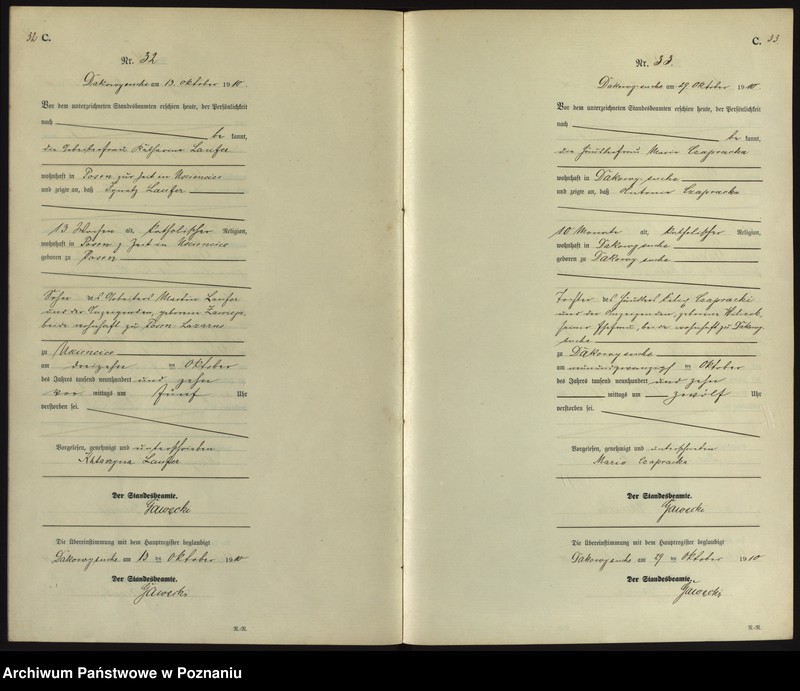 32 C.
Nr. 32
Dakowy suche am 13. Oktober 1910.
Vor dem unterzeichneten Standesbeamten erschien heute, der Persönlichkeit
nach
be kannt,
die Arbeiterfrau Katharina Laufer
wohnhaft in Posen zur Zeit in
und zeigte an, daß Ignatz Laufer
13 Wochen alt, katholischer Religion,
wohnhaft in Posen z. Zeit in
geboren zu Posen
Sohn des Arbeiters Martin Laufer
und der Anzeigenden, geborene
beide wohnhaft zu Posen Lazarus
zu
am dreizehn ten Oktober
des Jahres tausend neunhundert und zehn
vor mittags um fünf Uhr
verstorben sei.
Vorgelesen, genehmigt und unterschrieben
Katarzyna Laufer
Der Standesbeamte.
Gawecki
Die Übereinstimmung mit dem Hauptregister beglaubigt
Dakowy suche am 13 ten Oktober 1910
Der Standesbeamte.
Gawecki
R.-R.
C. 33
Nr. 33.
Dakowy suche am 29. Oktober 1910.
Vor dem unterzeichneten Standesbeamten erschien heute, der Persönlichkeit
nach
be kannt,
die Häuslerfrau Maria Czapracka
wohnhaft in Dakowy suche
und zeigte an, daß Antonie Czapracka
10 Monate alt, katholischer Religion,
wohnhaft in Dakowy suche
geboren zu Dakowy suche
Tochter des Häuslers Czapracki
und der Anzeigenden, geborene
seiner Ehefrau, beide wohnhaft zu Dakowy
suche
zu Dakowy suche
am neunundzwanzigsten Oktober
des Jahres tausend neunhundert und zehn
mittags um zwölf Uhr
verstorben sei.
Vorgelesen, genehmigt und unterschrieben
Maria Czapracka
Der Standesbeamte.
Gawecki
Die Übereinstimmung mit dem Hauptregister beglaubigt
Dakowy suche am 29 ten Oktober 1910
Der Standesbeamte.
Gawecki
R.-R.
Archiwum Państwowe w Poznaniu